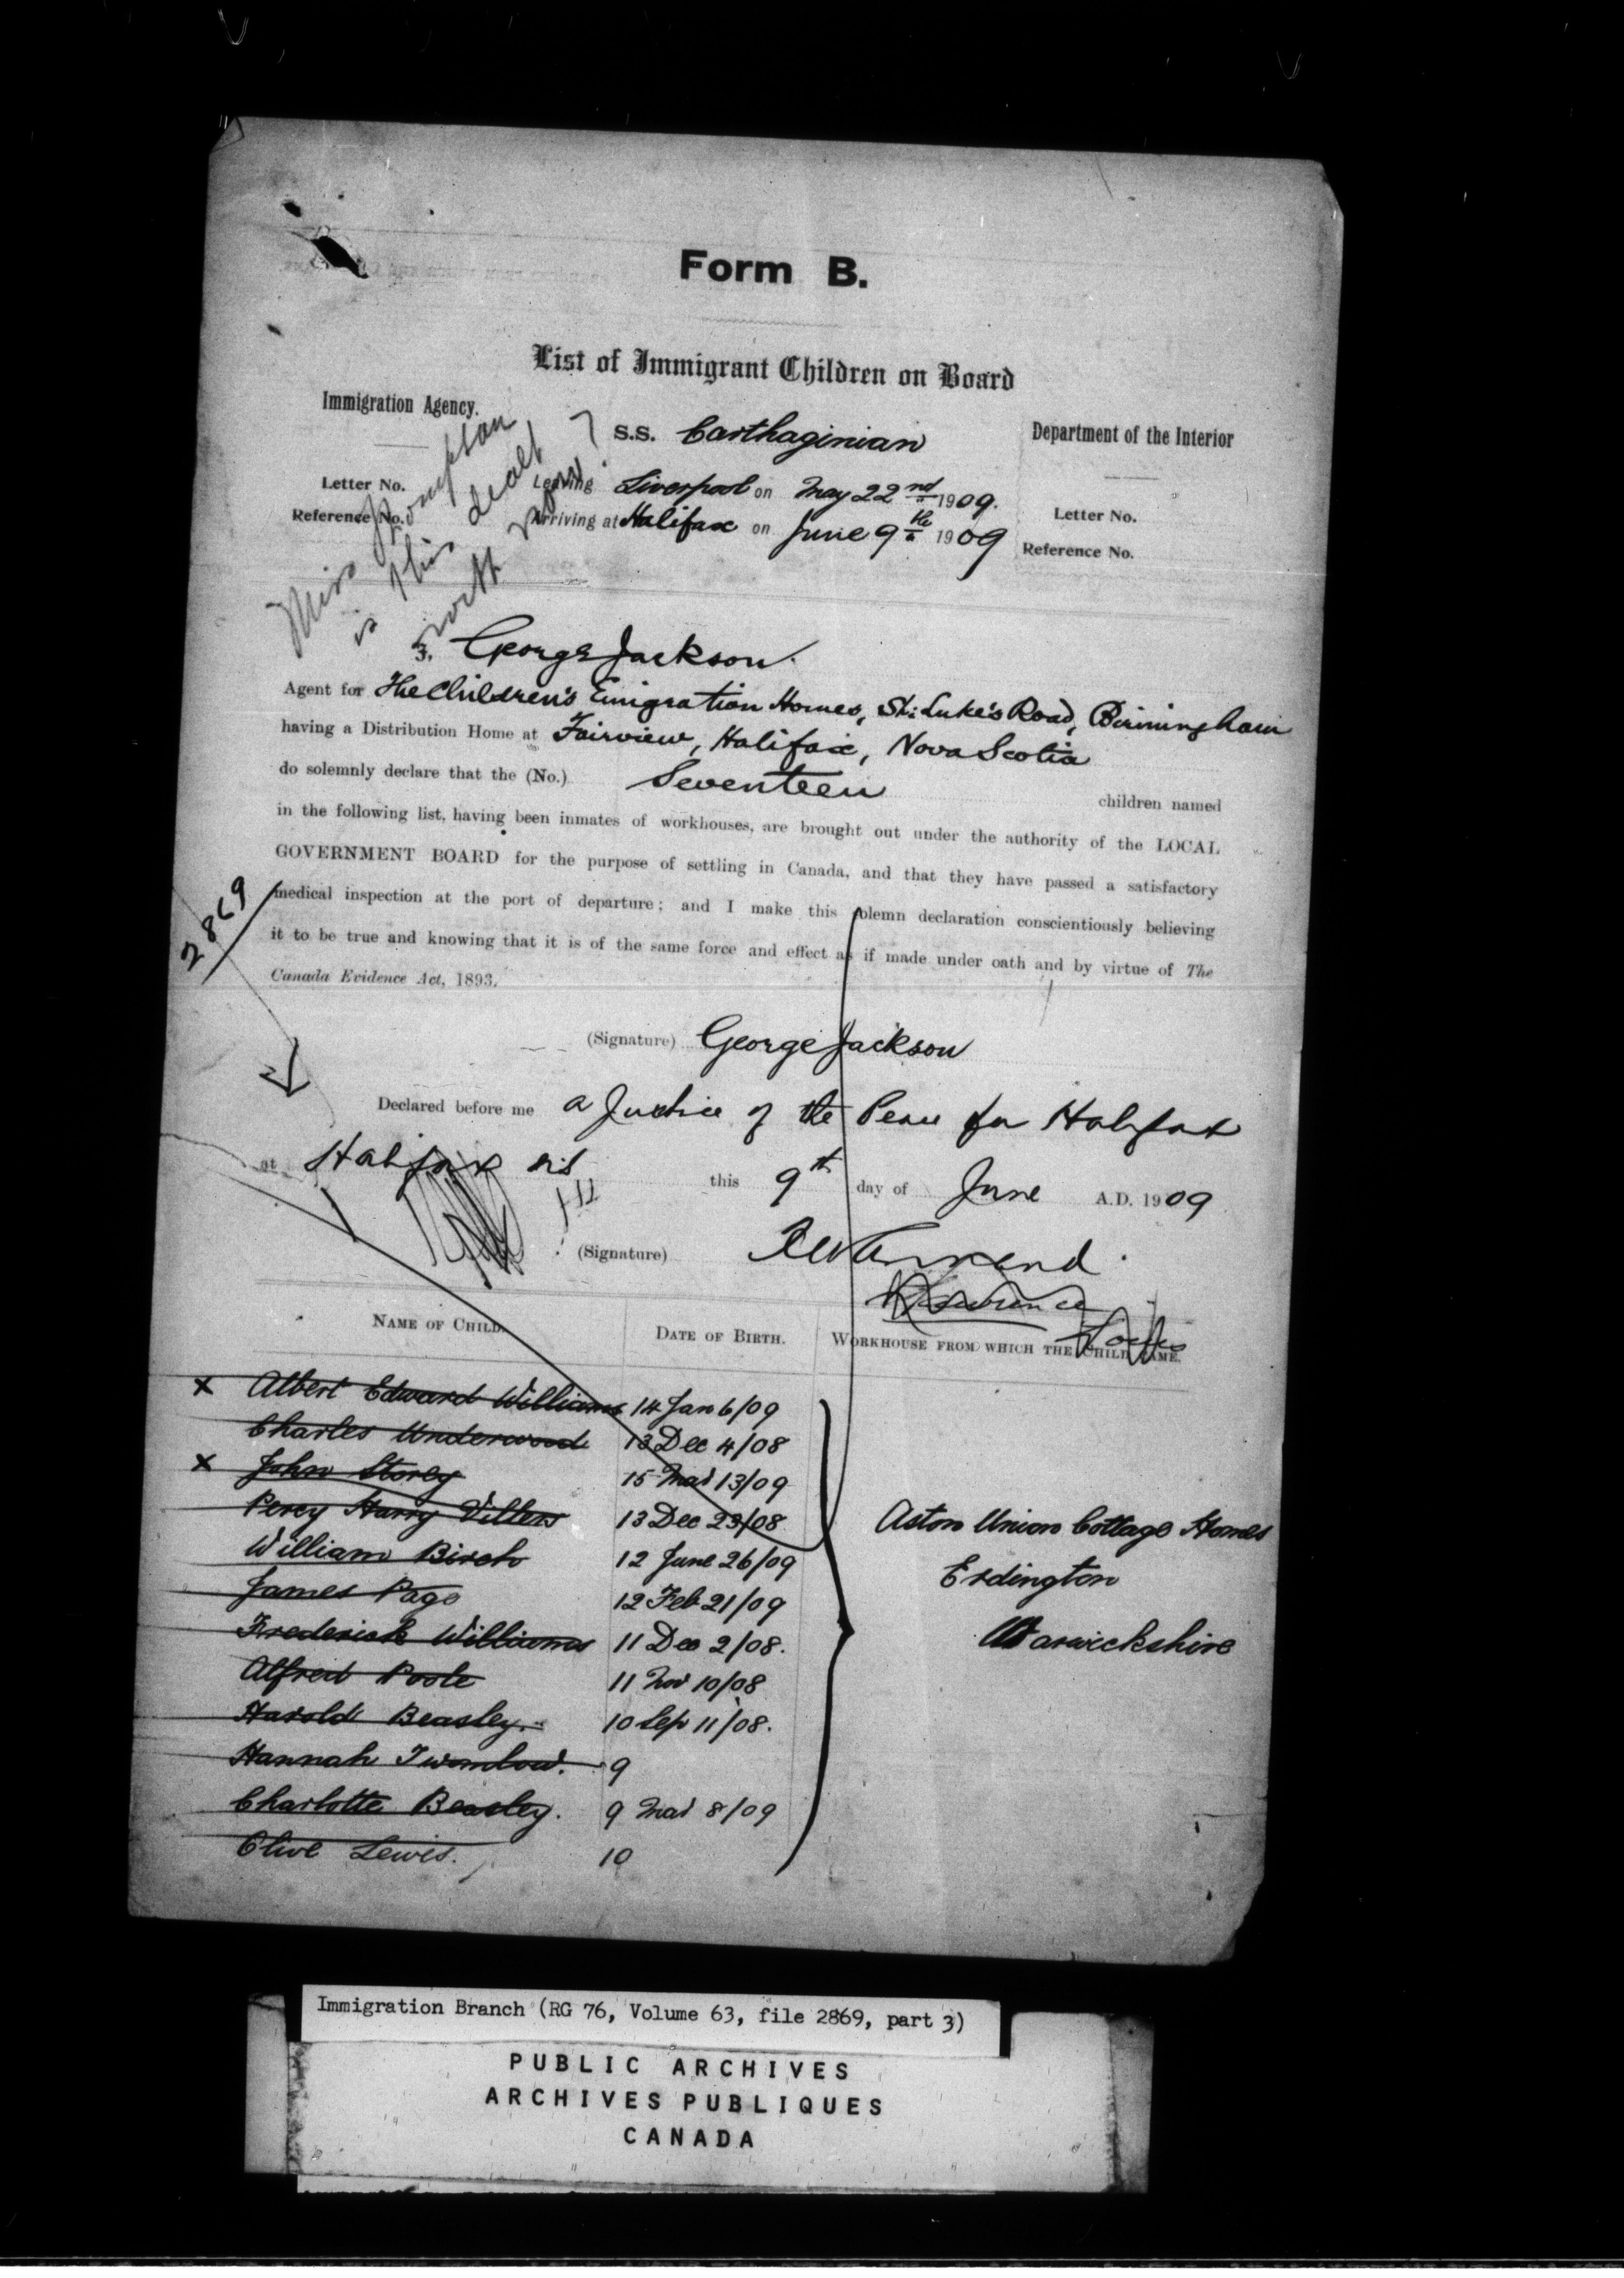 Form B.
List of Immigrant Children on Board
Immigration Agency.
S.S. Carthaginian
Department of the Interior
Letter No.
Leaving Liverpool on May 22nd 1909.
Letter No.
Reference No.
Arriving at Halifax on June 9th 1909
Reference No.
Miss
is this dealt
with
I, George Jackson.
Agent for The Children's Emigration Homes, St: Luke's Road, Birmingham
having a Distribution Home at Fairview, Halifax, Nova Scotia
do solemnly declare that the (No.) Seventeen children named
in the following list, having been inmates of workhouses, are brought out under the authority of the LOCAL
GOVERNMENT BOARD for the purpose of settling in Canada, and that they have passed a satisfactory
medical inspection at the port of departure; and I make this solemn declaration conscientiously believing
it to be true and knowing that it is of the same force and effect as if made under oath and by virtue of The
Canada Evidence Act, 1893.
2869
(Signature) George Jackson
Declared before me a Justice of the Peace for Halifax
at Halifax NS this 9th day of June A.D. 1909
(Signature)
NAME OF CHILD.
DATE OF BIRTH.
WORKHOUSE FROM WHICH THE CHILD CAME.
x Albert Edward Williams 14 Jan 6/09
Charles Underwood 13 Dec 4/08
x John Storey 15 Mar 13/09
Percy Harry Villers 13 Dec 23/08
William Birch 12 June 26/09
James Page 12 Feb 21/09
Frederick Williams 11 Dec 2/08.
Alfred Poole 11 Nov 10/08
Harold Beasley. 10 Sep 11/08.
Hannah Twamlow. 9
Charlotte Beasley. 9 Mar 8/09
Olive Lewis. 10
Aston Union Cottage Homes
Erdington
Warwickshire
Immigration Branch (RG 76, Volume 63, file 2869, part 3)
PUBLIC ARCHIVES
ARCHIVES PUBLIQUES
CANADA